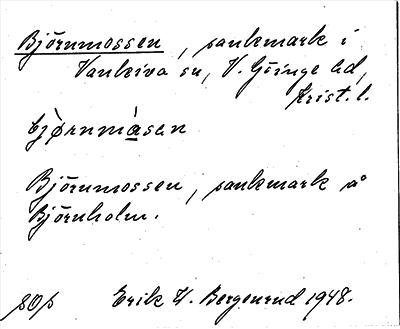 Björnmossen, sankmark i
Vankiva sn, V. Göinge hd,
Krist. l.
bjø̀rnmåsən
Björnmossen, sankmark på
Björnholm.
Erik W. Bergenrud 1948.